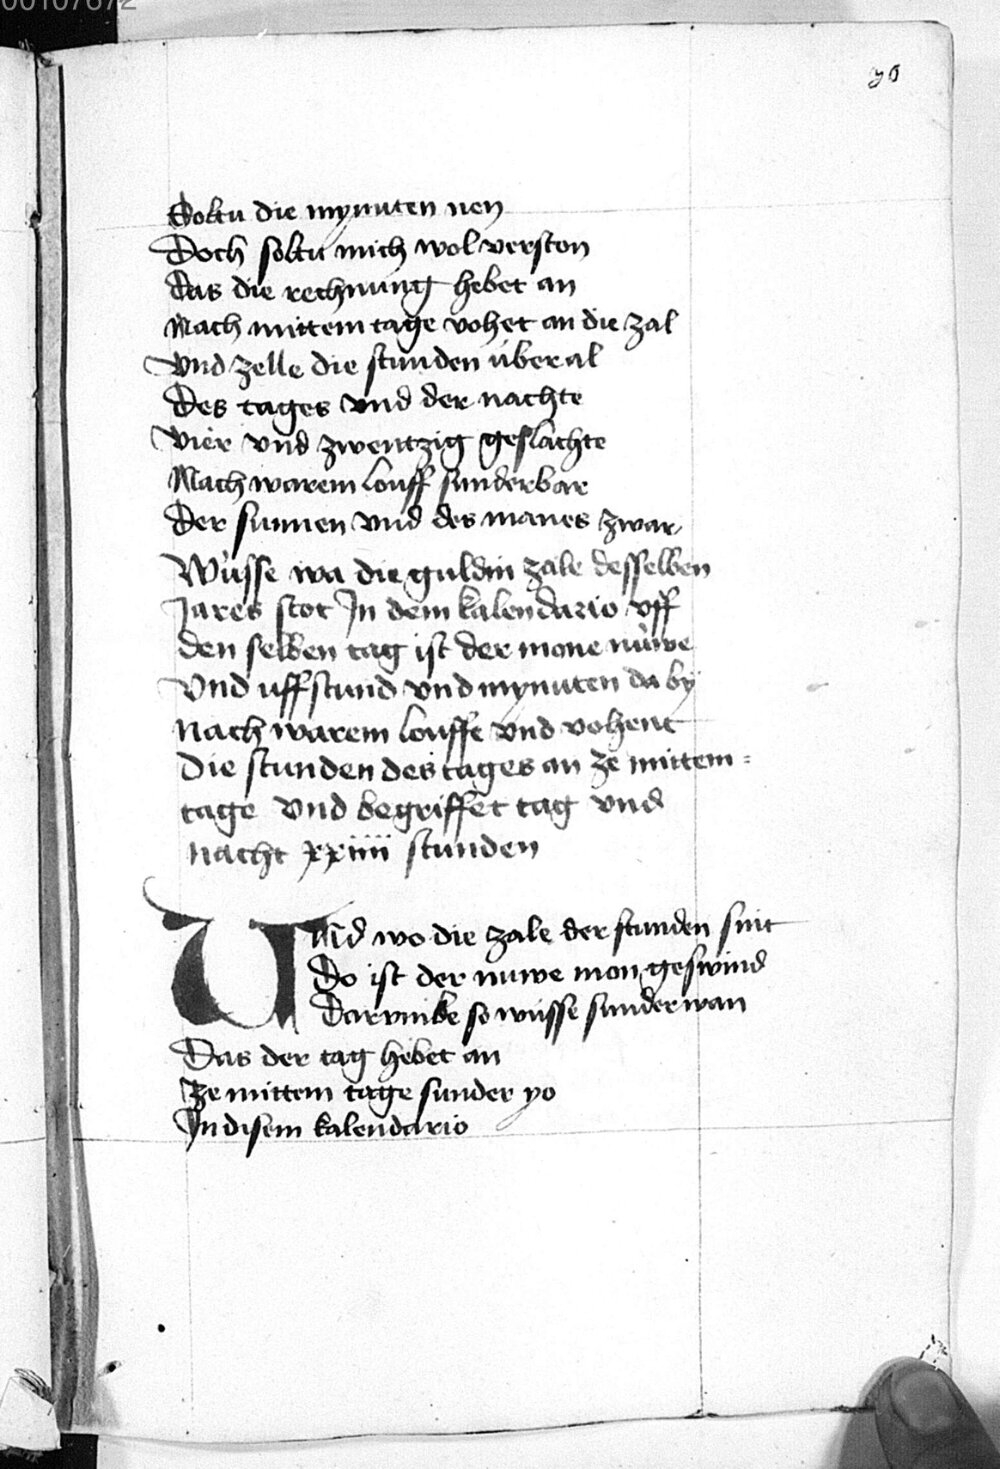 00107672
70
Soltu die mynuten nen
Doch soltu mich wol verston
Das die rechnung hebet an
Nach mittem tage vohet an die zal
Vnd zelle die stunden über al
Des tages vnd der nachte
Vier vnd zwentzig geslachte
Nach warem louff sunderbar
Der sunnen vnd des manes zwar
Wüsse wa die guldin zale desselben
Jares stot In dem kalendario vff
den selben tag ist der mone nüwe
Vnd uff stund vnd mynuten da by
Nach warem louffe vnd vohent
Die stunden des tages an ze mittem=
tage Vnd begriffet tag vnd
Nacht xxiiii stunden
Vnd wo die zale der stunden sint
Do ist der nuwe mon geswind
Darvmbe so wüsse sunder wan
Das der tag hebet an
Ze mittem tage sunder yo
In disem kalendario